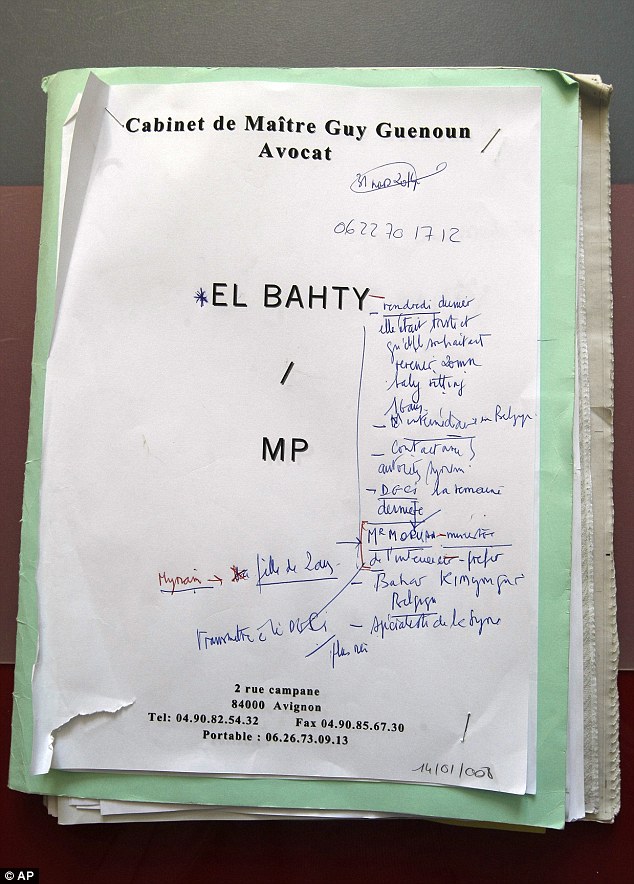 Cabinet de Maître Guy Guenoun
Avocat
06 22 70 17 12
*EL BAHTY
/
MP
- vendredi dernier
elle était triste et
qu'elle souhaitait
revenir
baby sitting
16 ans
- intermédiaire en Belgique
- Contact avec
autorités
- DGCI la semaine
dernière
Mr ministère
de l'intérieur - préfet
- Bahar Kimyongür
Belgique
- spécialiste de la Syrie
Myriam → fille de 2 ans
Transmettre à la DGCI
2 rue campane
84000 Avignon
Tel: 04.90.82.54.32 Fax 04.90.85.67.30
Portable : 06.26.73.09.13
14/01/008
© AP